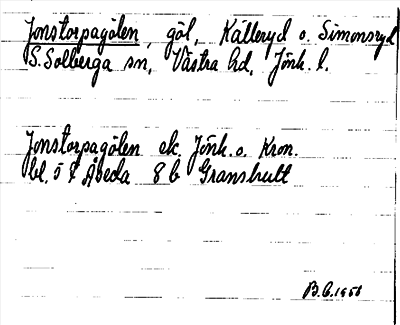 Jonstorpagölen, göl, Källeryd o. Simonsryd
S. Solberga sn, Västra hd, Jönk. l.
Jonstorpagölen ek. Jönk. o. Kron.
bl. 5 f Åseda 8 b Granshult
B.C. 1958